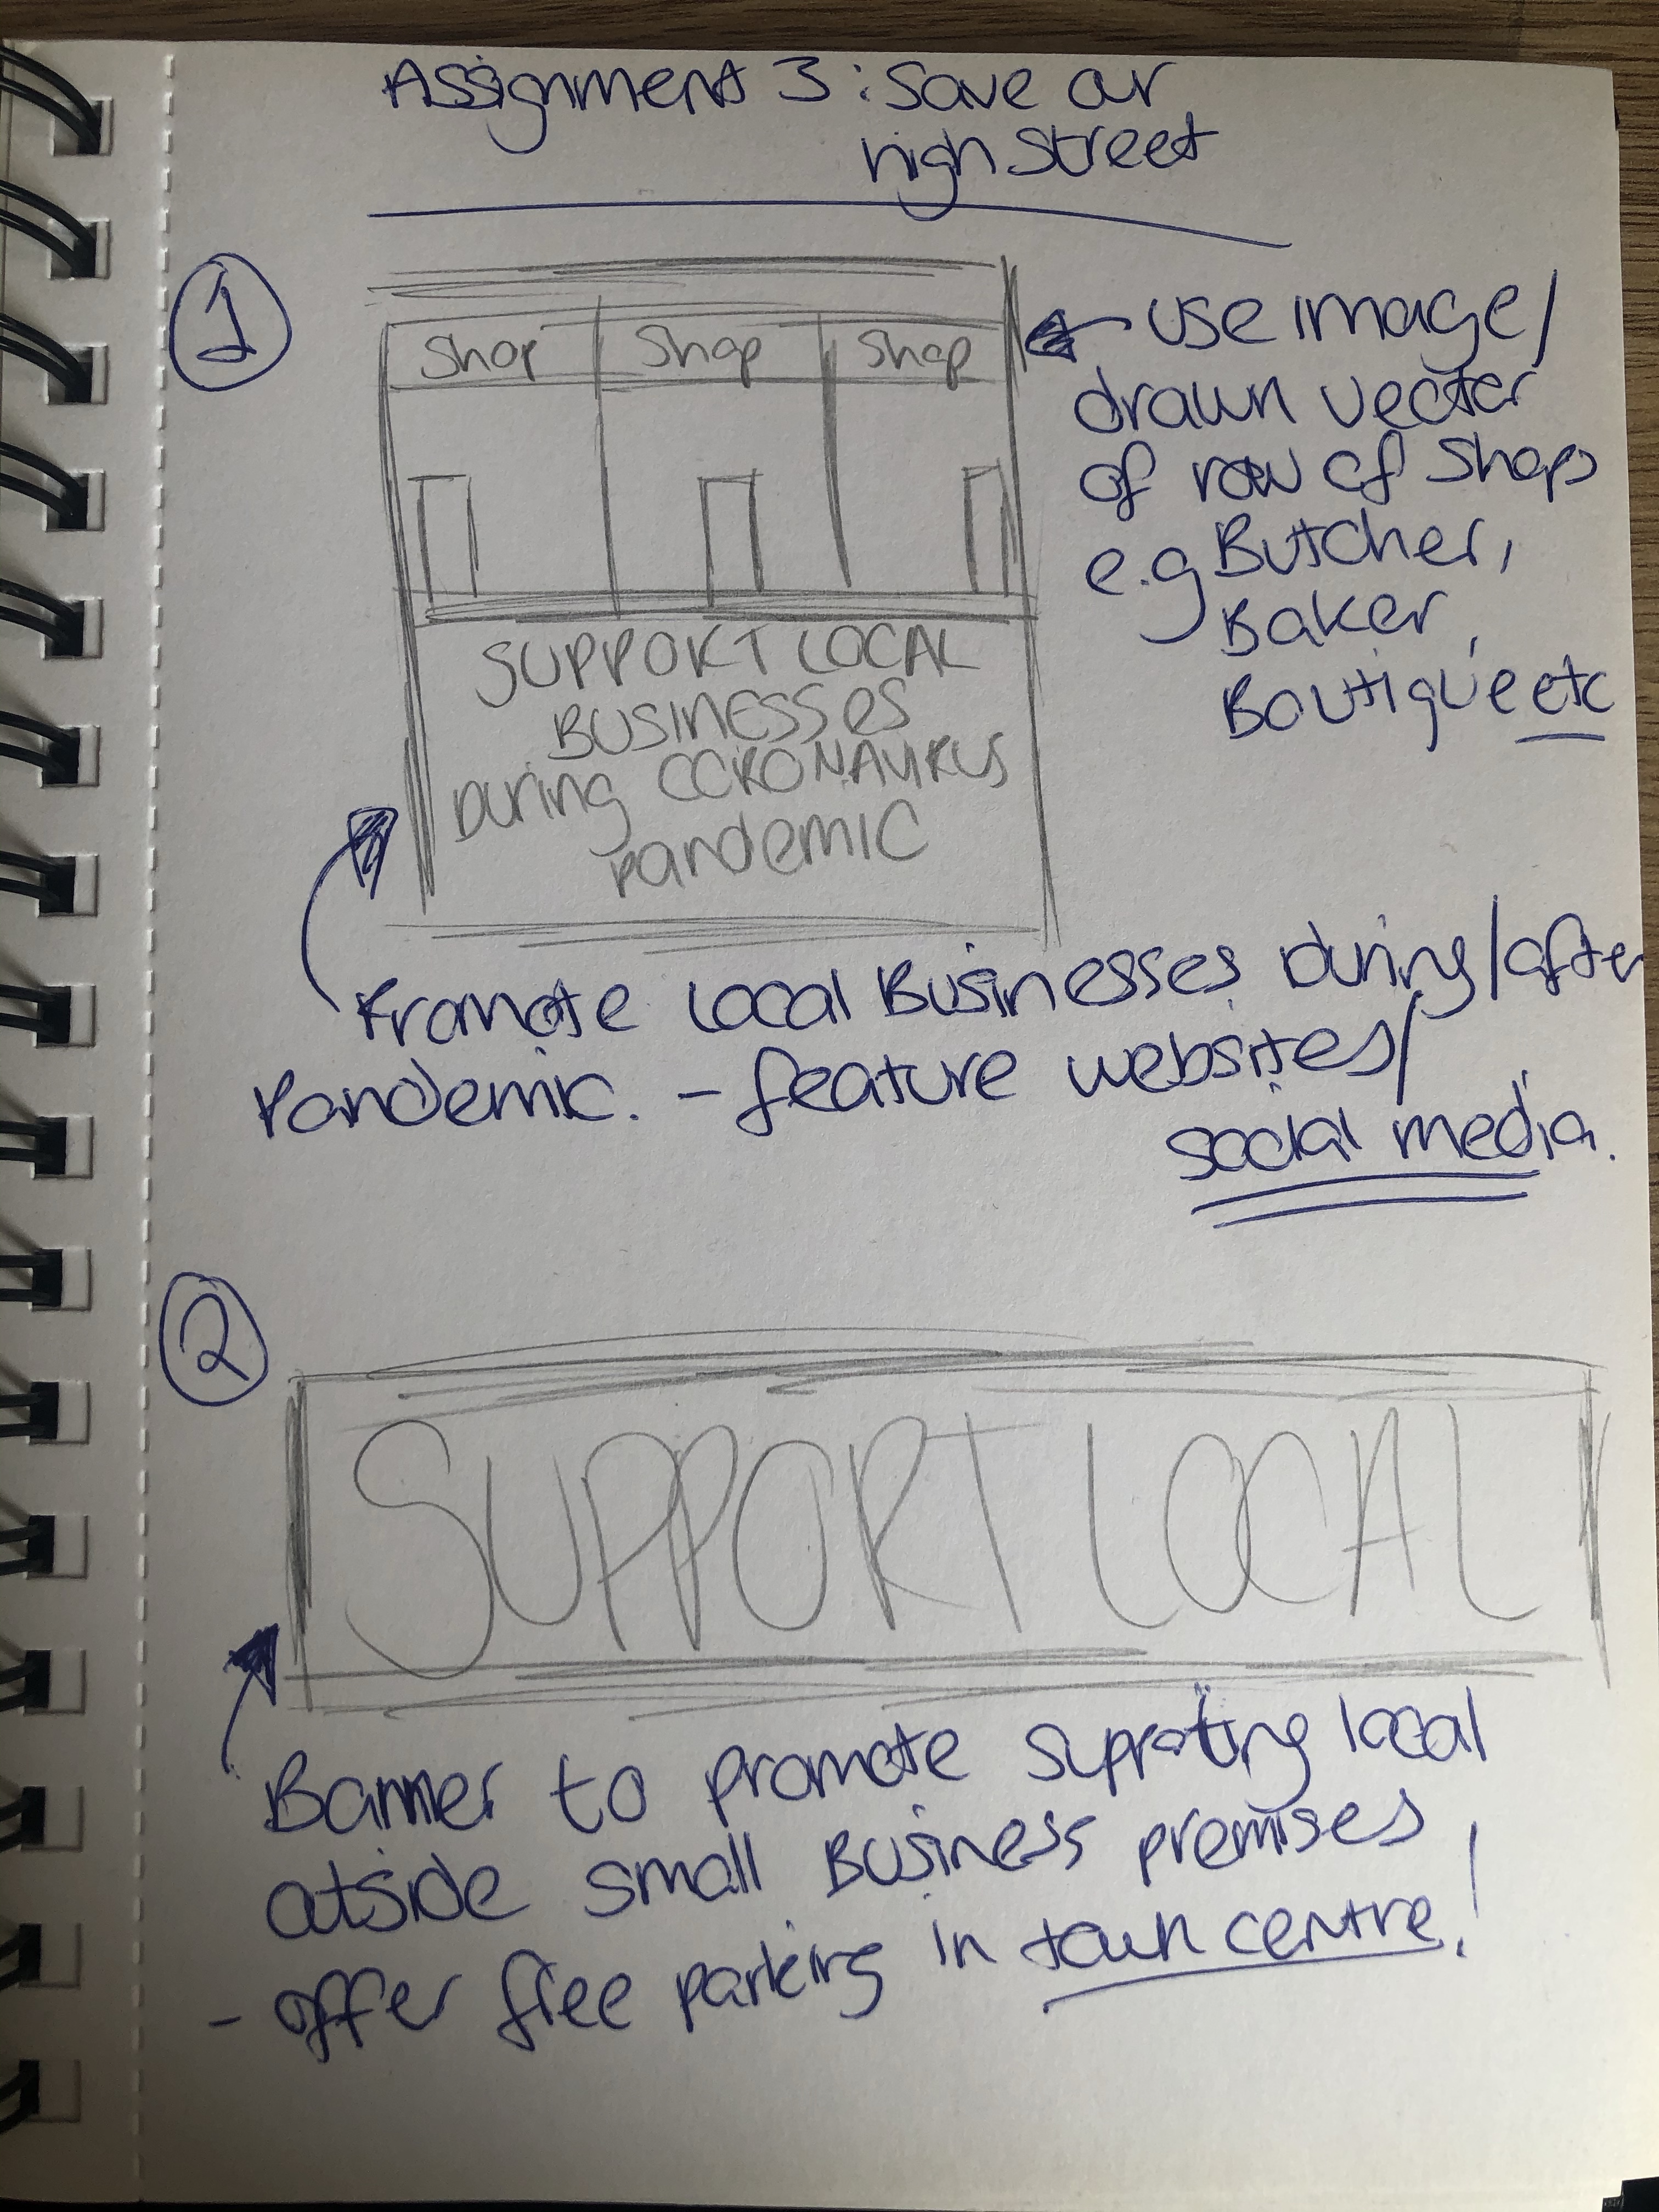 Assignment 3: Save our
high street
1
Shop Shop Shop
SUPPORT LOCAL
BUSINESSES
DURING CORONAVIRUS
PANDEMIC
USE IMAGE/
drawn vector
of row of shops
e.g Butcher,
Baker,
Boutique etc
Promote Local Businesses During/after
Pandemic. - feature websites/
social media.
2
SUPPORT LOCAL
Banner to promote supporting local
outside small Business premises
- offer free parking in town centre!